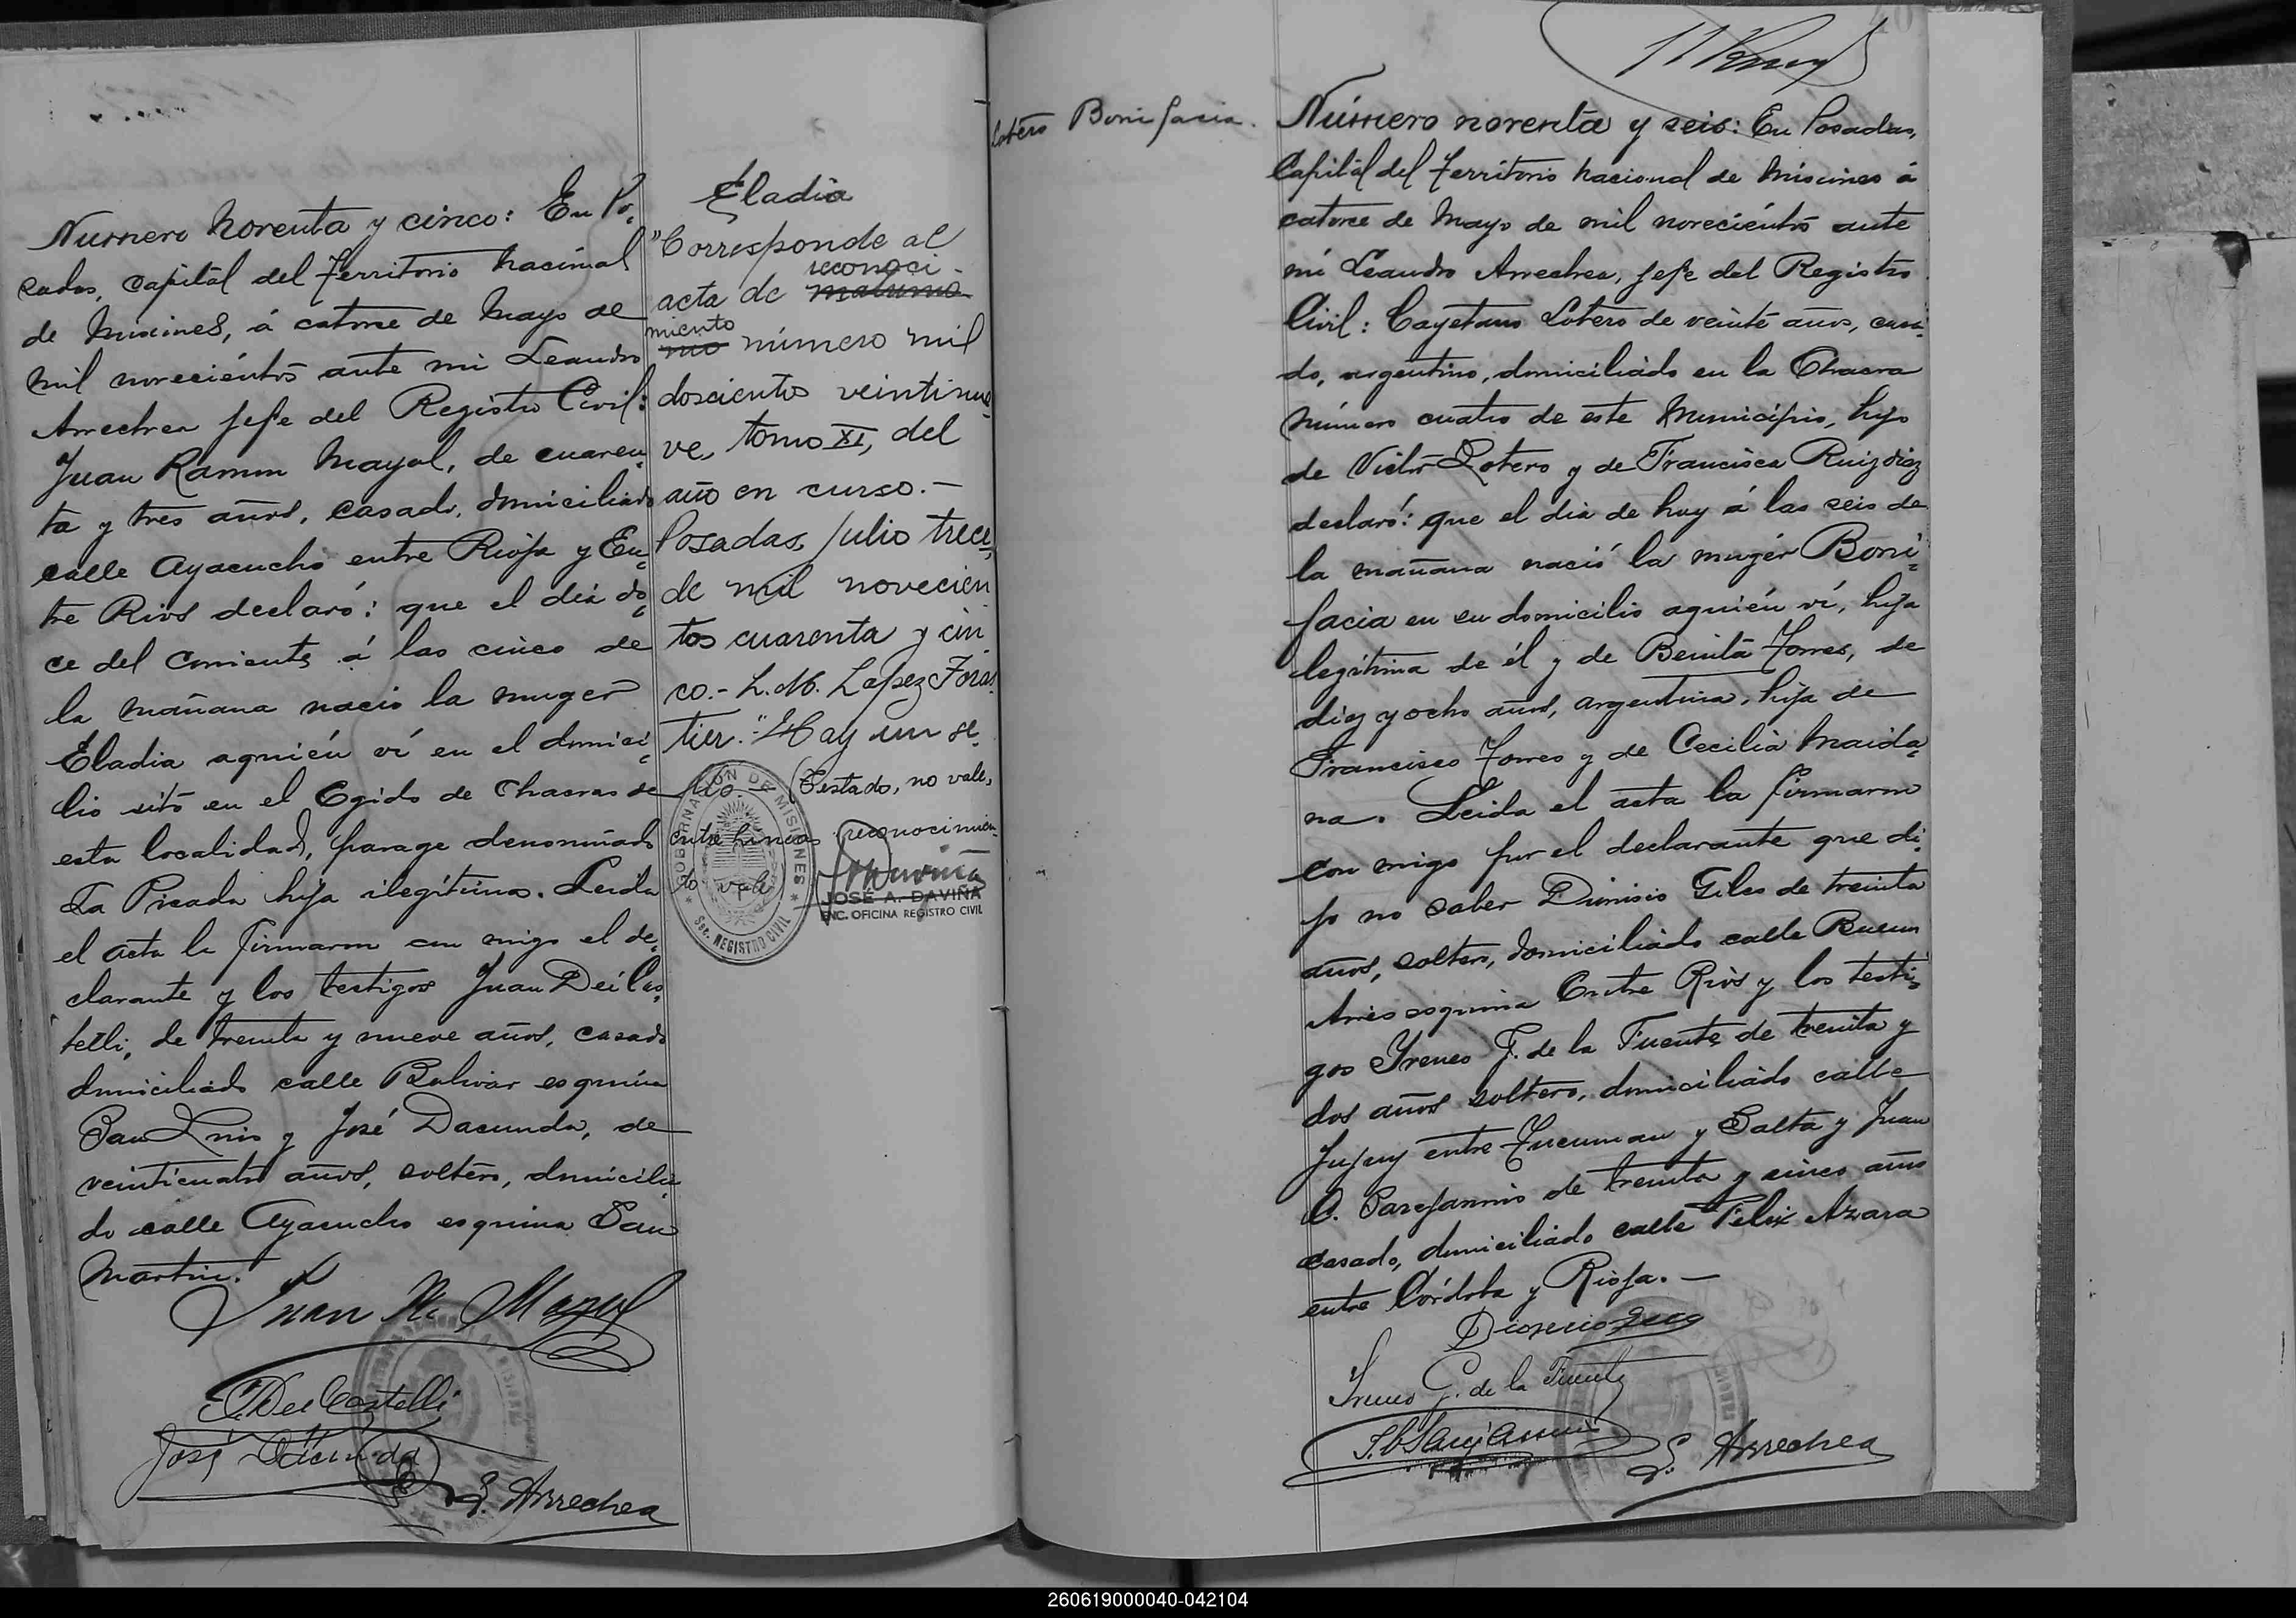 Numero Noventa y cinco: En Po=
sadas, capital del Territorio Nacional
de Misiones, á catorce de Mayo de
mil novecientos ante mi Leandro
Arrechea Jefe del Registro Civil:
Juan Ramon Mayol, de cuaren=
ta y tres años, casado, domiciliado
calle Ayacucho entre Rioja y En=
tre Rios declaró: que el dia do=
ce del corriente á las cinco de
la mañana nació la muger
Eladia aquién ví en el domici=
lio sito en el Egido de Chacras de
esta localidad, parage denominado
La Picada hija ilegítima. Leida
el acta la firmaron con migo el de=
clarante y los testigos Juan Dei Cas=
telli, de treinta y nueve años, casado
domiciliado calle Bolivar esquina
San Luis y José Dacunda, de
veinticuatro años, soltero, domicilia=
do calle Ayacucho esquina San
Martin.
Juan R. Mayol
Dei Castelli
José Dacunda
L. Arrechea
Eladia
"Corresponde al
reconoci-
acta de materno
miento
nio número mil
doscientos veintinue=
ve, tomo XI, del
año en curso.-
Posadas, Julio trece,
de mil novecien
tos cuarenta y cin
co.- L. M. Lopez Foras
tier." Hay un se-
llo.- (Testado, no vale,
entre lineas reconocimien-
to vale
GOBERNACIÓN DE MISIONES
Sec. REGISTRO CIVIL
JOSÉ A. DAVIÑA
ENC. OFICINA REGISTRO CIVIL
Lotero Bonifacia.
Número noventa y seis: En Posadas,
Capital del Territorio Nacional de Misiones á
catorce de Mayo de mil novecientos ante
mi Leandro Arrechea, Jefe del Registro
Civil: Cayetano Lotero de veinte años, casa=
do, argentino, domiciliado en la Chacra
número cuatro de este Municipio, hijo
de Victor Lotero y de Francisca Ruizdiaz
declaró: que el dia de hoy á las seis de
la mañana nació la mugér Boni=
facia en su domicilio aquién ví, hija
legítima de él y de Benita Torres, de
diez y ocho años, argentina, hija de
Francisco Torres y de Cecilia Maida=
na. Leida el acta la firmaron
con migo por el declarante que di=
jo no saber Dionisio Giles de treinta
años, soltero, domiciliado calle Buenos
Aires esquina Entre Rios y los testi=
gos Ireneo G. de la Fuente de treinta y
dos años soltero, domiciliado calle
Jujuy entre Tucuman y Salta y Juan
B. Sarejannis de treinta y cinco años
casado, domiciliado calle Felix Azara
entre Córdoba y Rioja.-
Dionisio
Ireneo G. de la Fuente
L. Arrechea
260619000040-042104